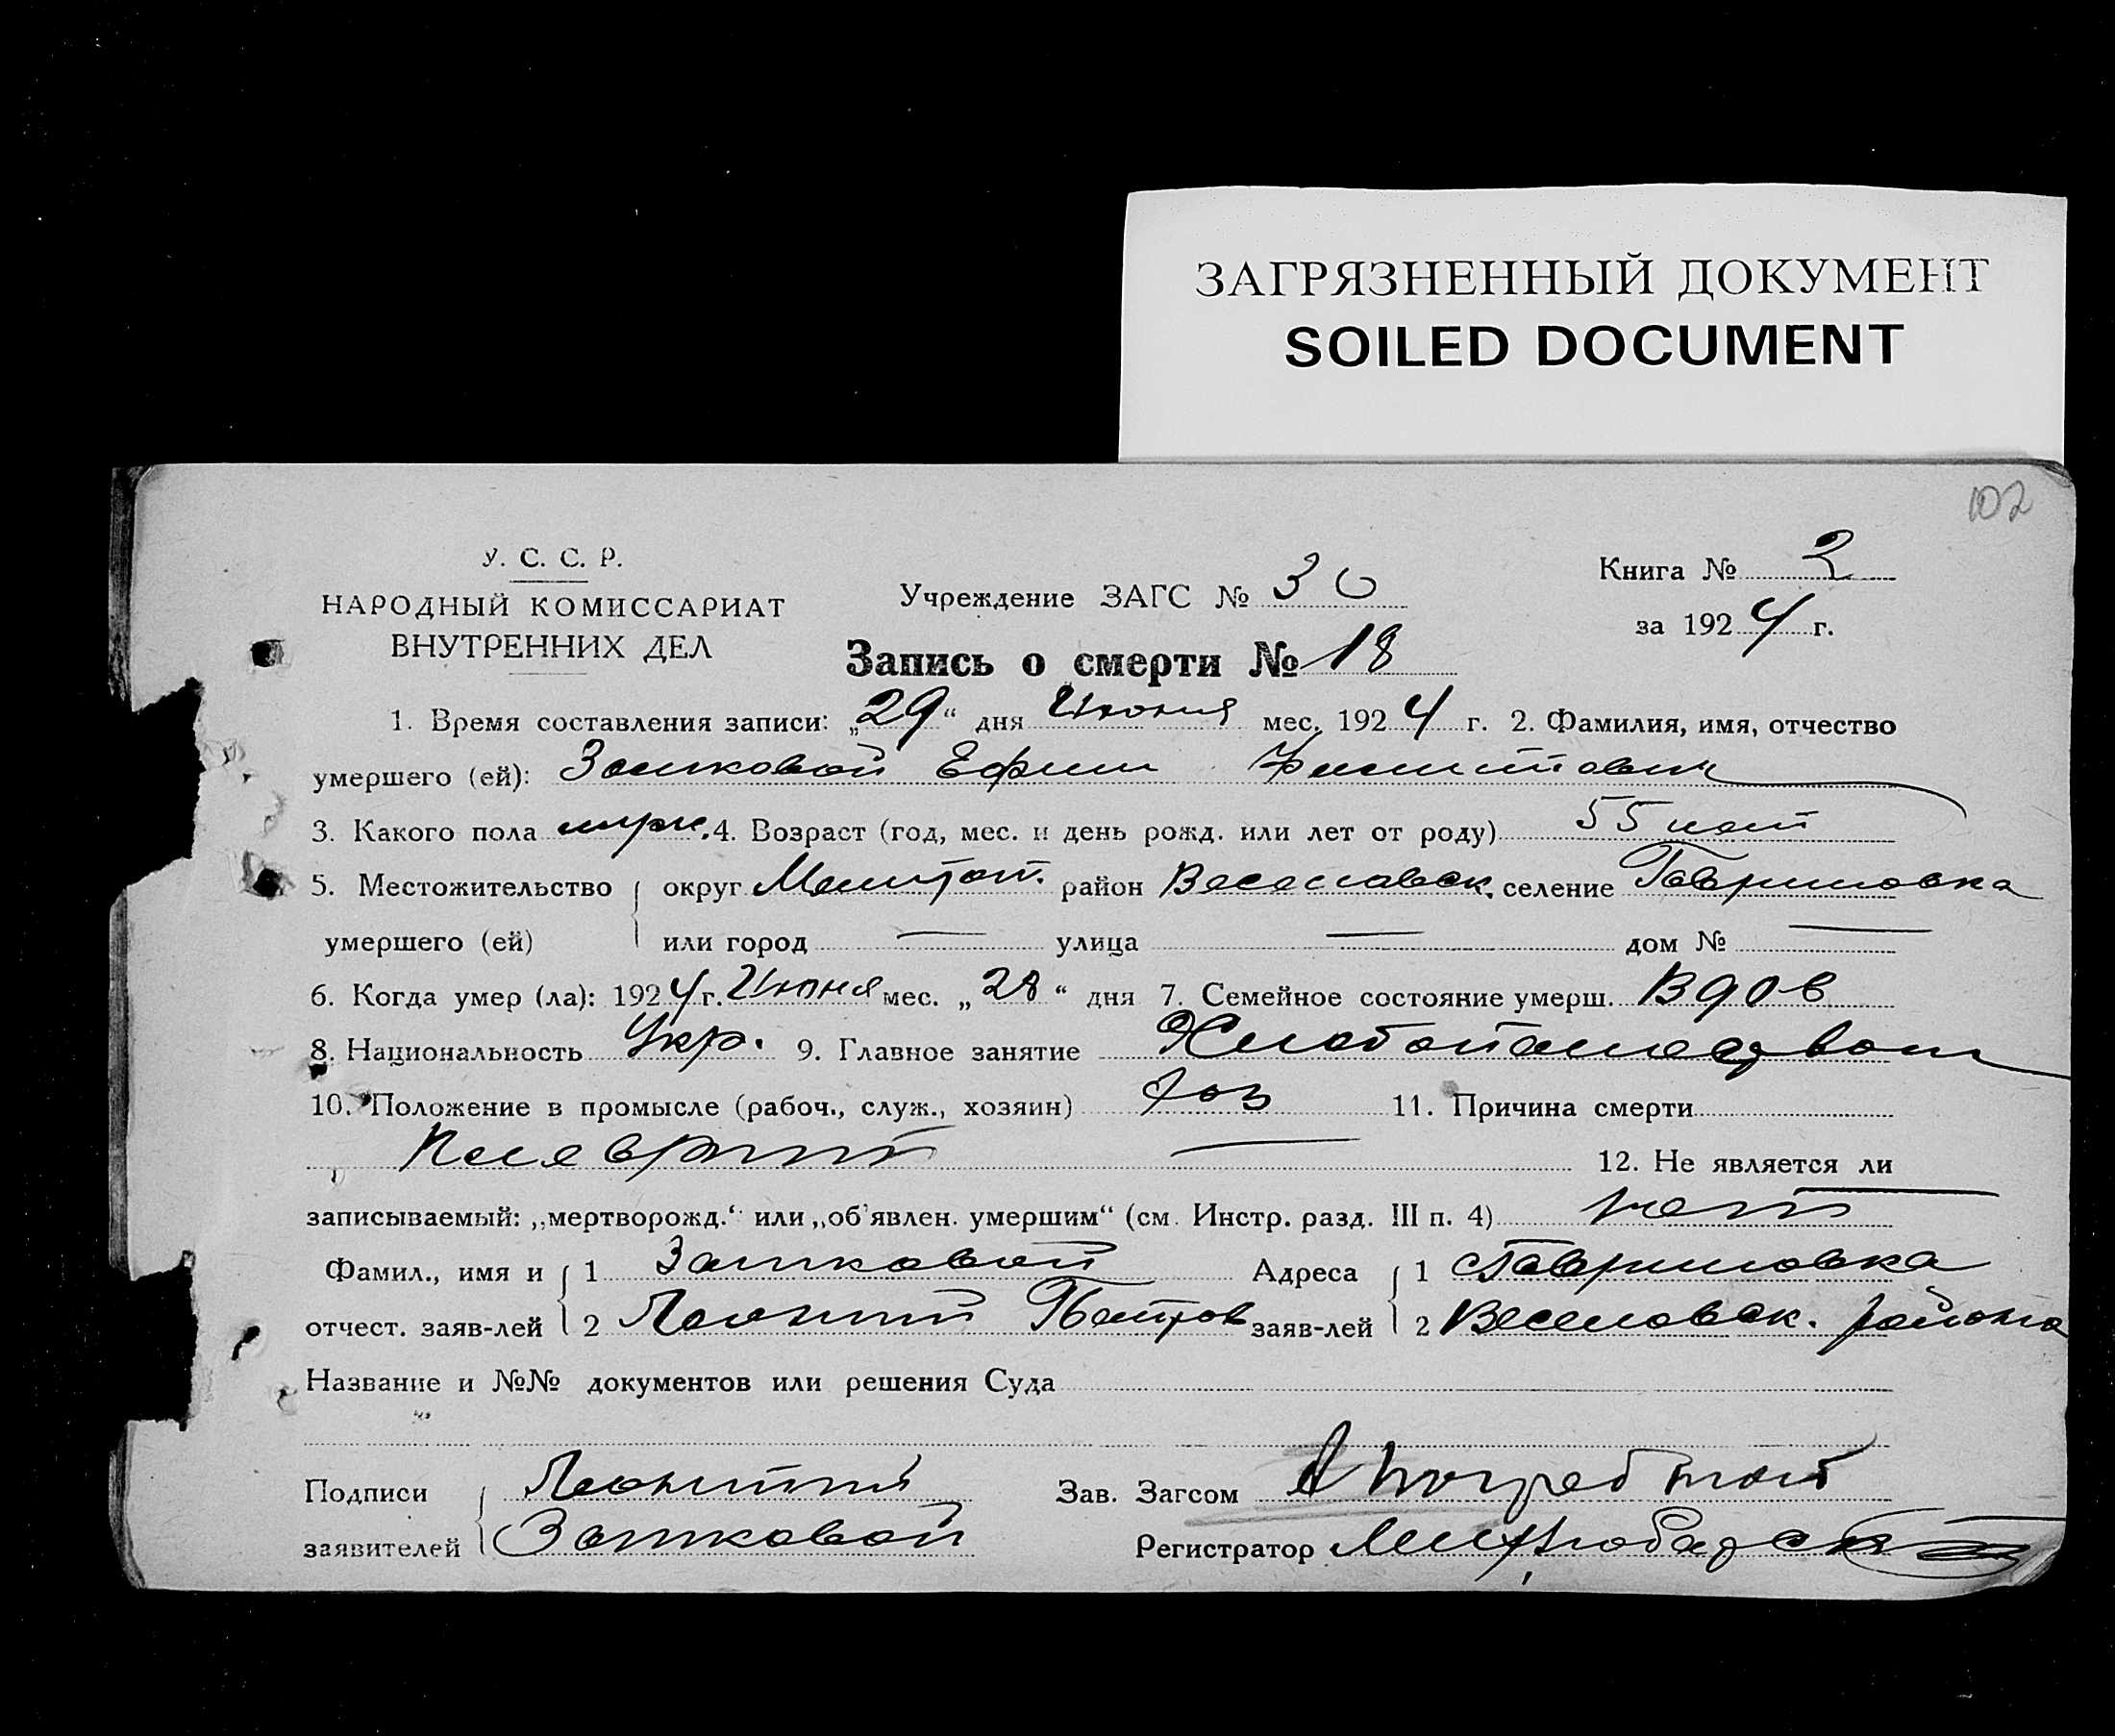 ЗАГРЯЗНЕННЫЙ ДОКУМЕНТ
SOILED DOCUMENT
102
У. С. С. Р.
НАРОДНЫЙ КОМИССАРИАТ
ВНУТРЕННИХ ДЕЛ
Учреждение ЗАГС № 30
Книга № 2
за 1924 г.
Запись о смерти № 18
1. Время составления записи: „29“ дня Июня мес. 1924 г. 2. Фамилия, имя, отчество
умершего (ей): Замковой Ефим
3. Какого пола муж. 4. Возраст (год, мес. и день рожд. или лет от роду) 55 лет
5. Местожительство округ Мелитоп. район Веселовск. селение Гавриловка
умершего (ей) или город — улица — дом № —
6. Когда умер (ла): 1924 г. Июня мес. „28“ дня 7. Семейное состояние умерш. Вдов
8. Национальность Укр. 9. Главное занятие
10. Положение в промысле (рабоч., служ., хозяин) хоз 11. Причина смерти
Плеврит —
12. Не является ли
записываемый: „мертворожд.“ или „об'явлен. умершим“ (см. Инстр. разд. III п. 4) нет
Фамил., имя и 1 Замковой Адреса 1 Гавриловка
отчест. заяв-лей 2 Леонтий Петров заяв-лей 2 Веселовск. района
Название и №№ документов или решения Суда
Подписи Леонтий Зав. Загсом
заявителей Замковой Регистратор